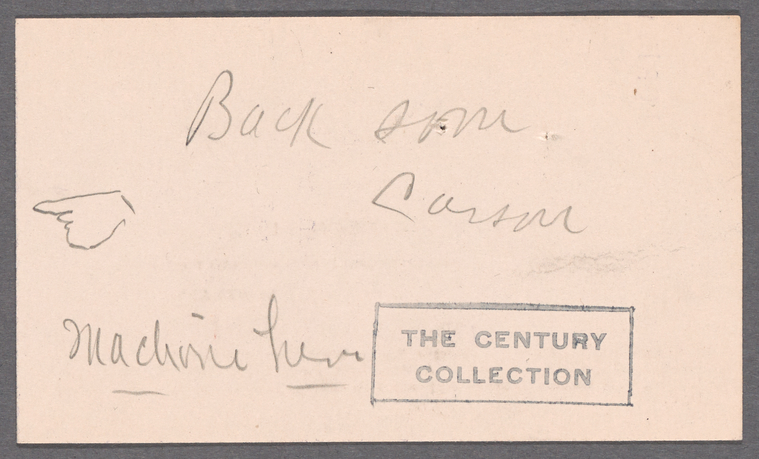 Back soon
Carson
Machine here
THE CENTURY
COLLECTION